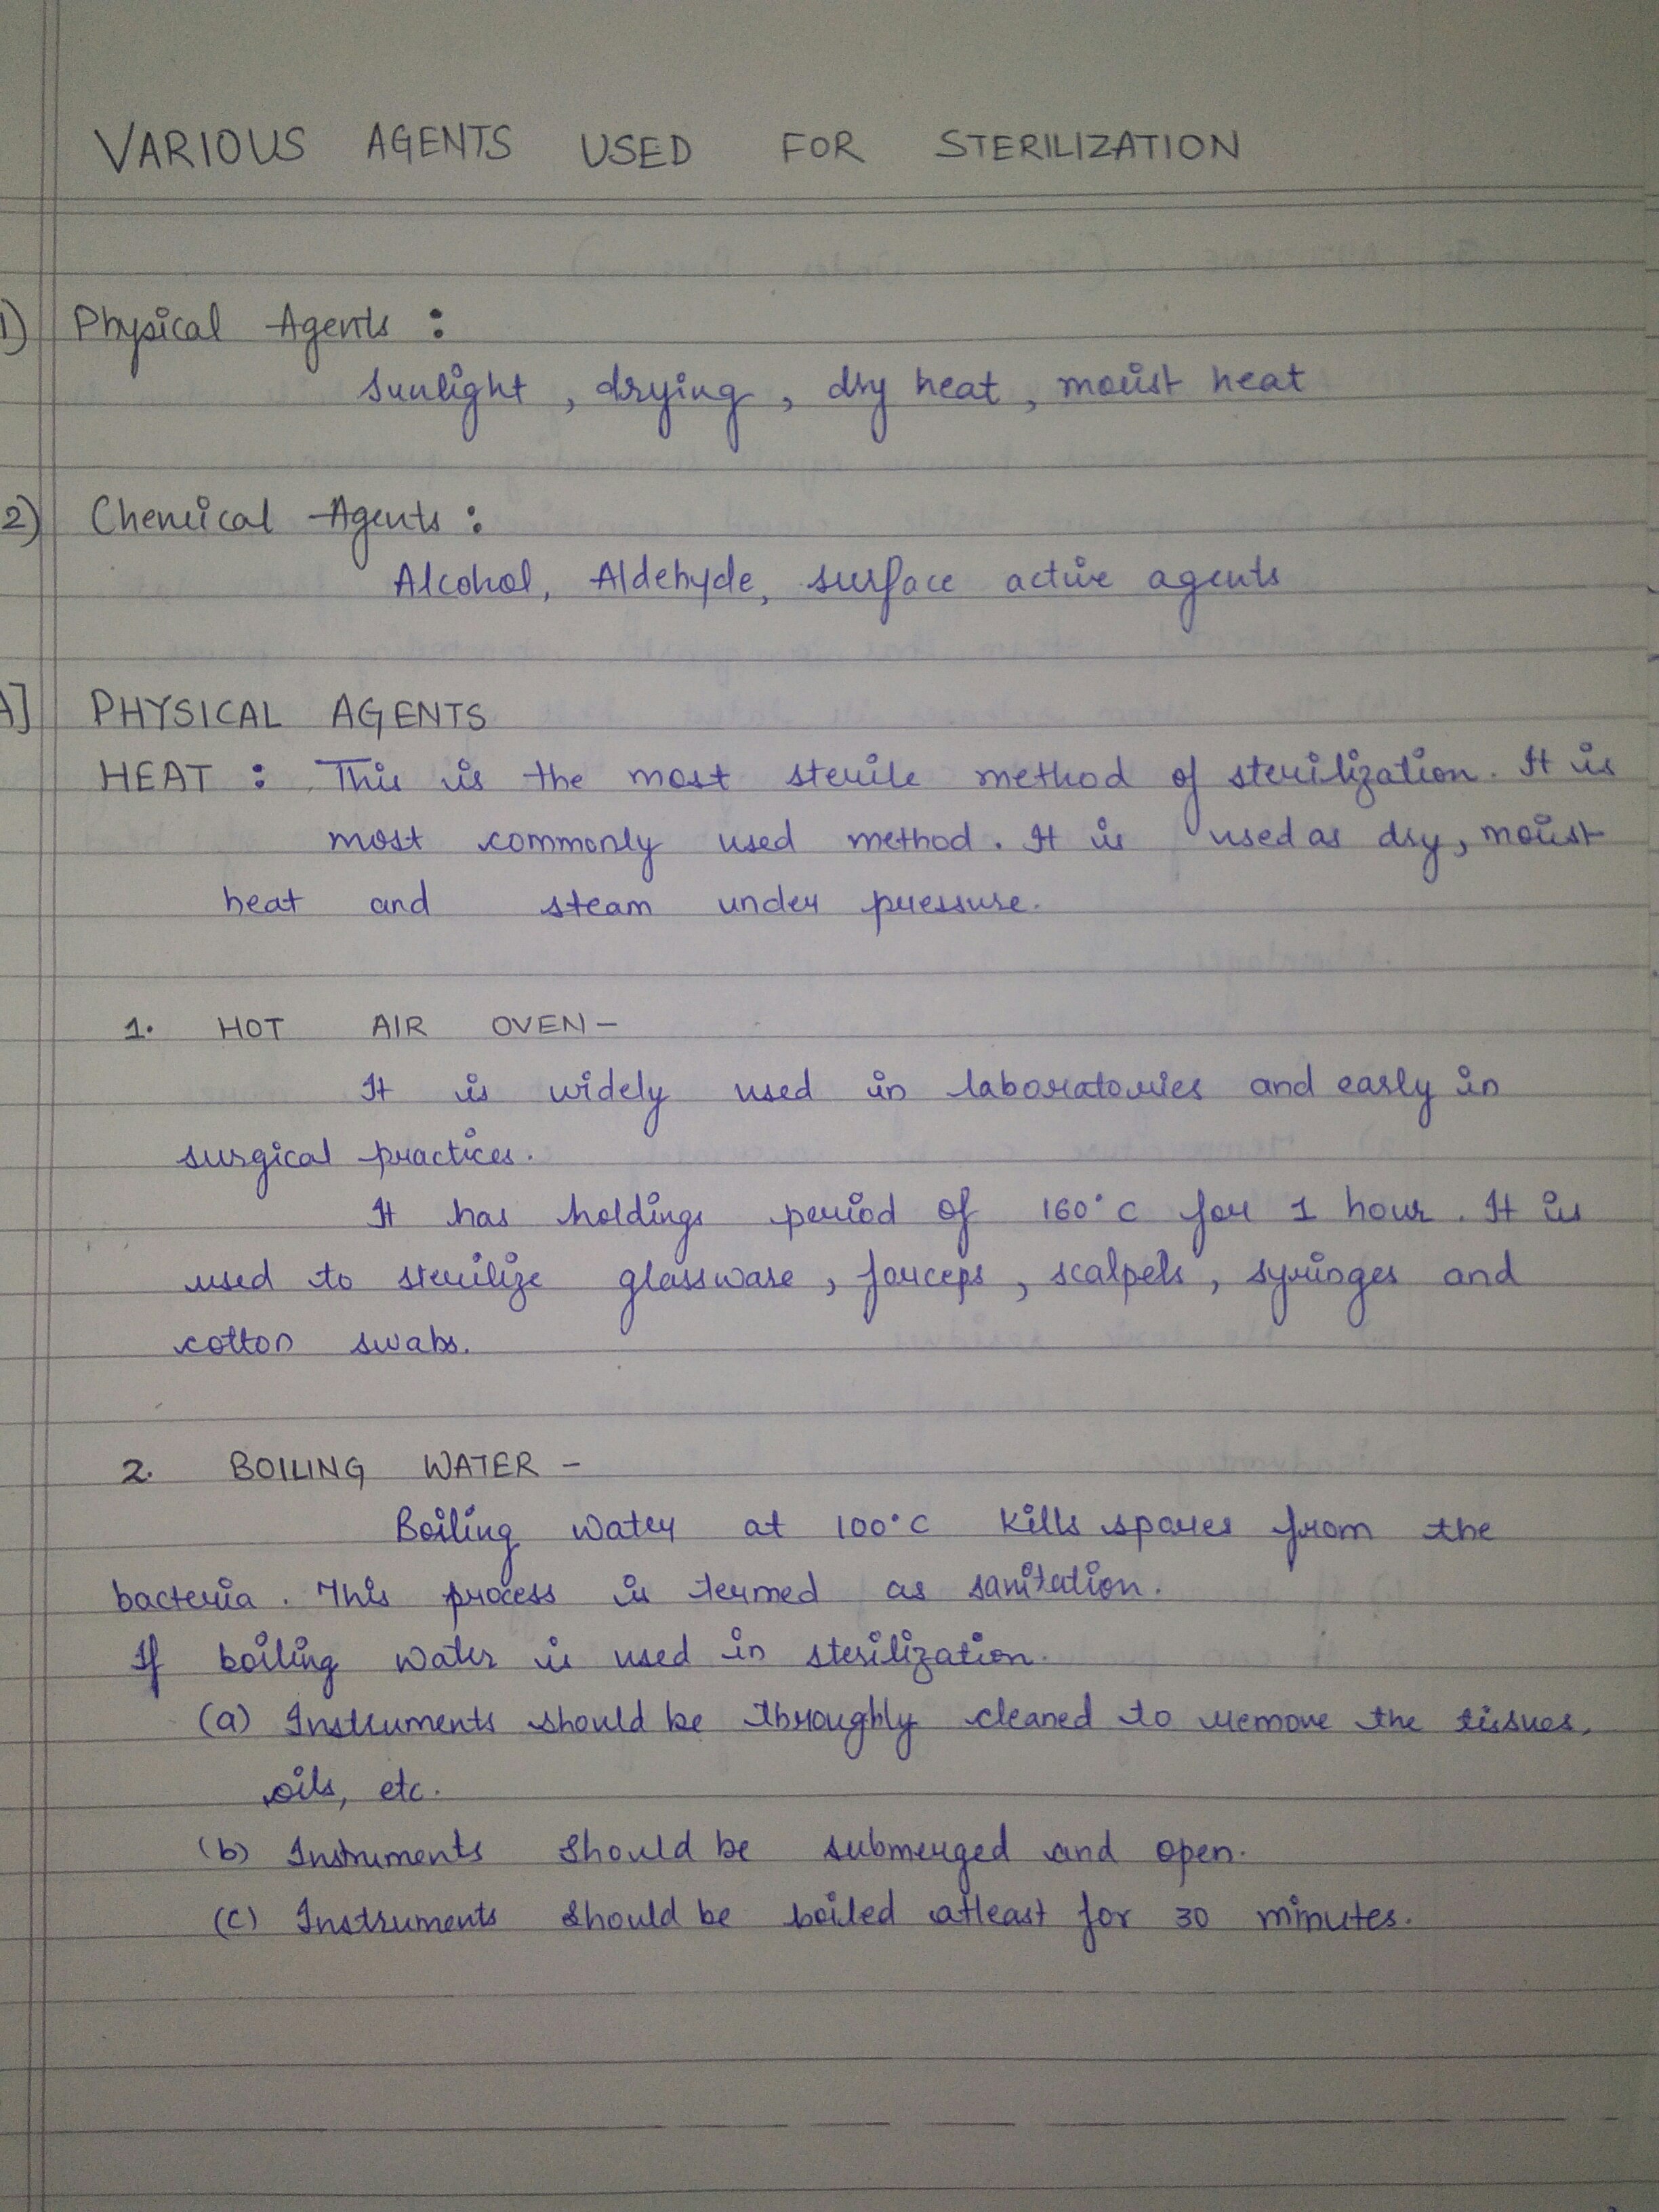 VARIOUS AGENTS USED FOR STERILIZATION
1) Physical Agents :
sunlight , drying , dry heat , moist heat
2) Chemical Agents :
Alcohol, Aldehyde, surface active agents
A] PHYSICAL AGENTS
HEAT : This is the most sterile method of sterilization. It is
most commonly used method. It is used as dry, moist
heat and steam under pressure.
1. HOT AIR OVEN -
It is widely used in laboratories and early in
surgical practices.
It has holdings period of 160°C for 1 hour. It is
used to sterilize glassware, forceps, scalpels, syringes and
cotton swabs.
2. BOILING WATER -
Boiling water at 100°C kills spores from the
bacteria. This process is termed as sanitation.
If boiling water is used in sterilization.
(a) Instruments should be throughly cleaned to remove the tissues,
oils, etc.
(b) Instruments should be submerged and open.
(c) Instruments should be boiled atleast for 30 minutes.